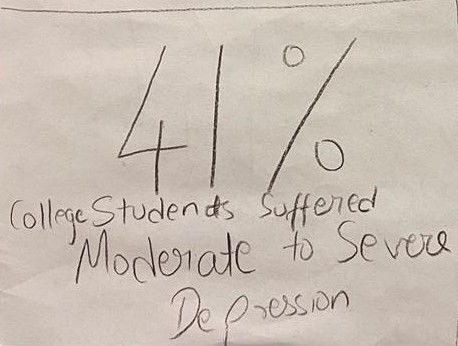 41%
College Students Suffered
Moderate to Severe
Depression